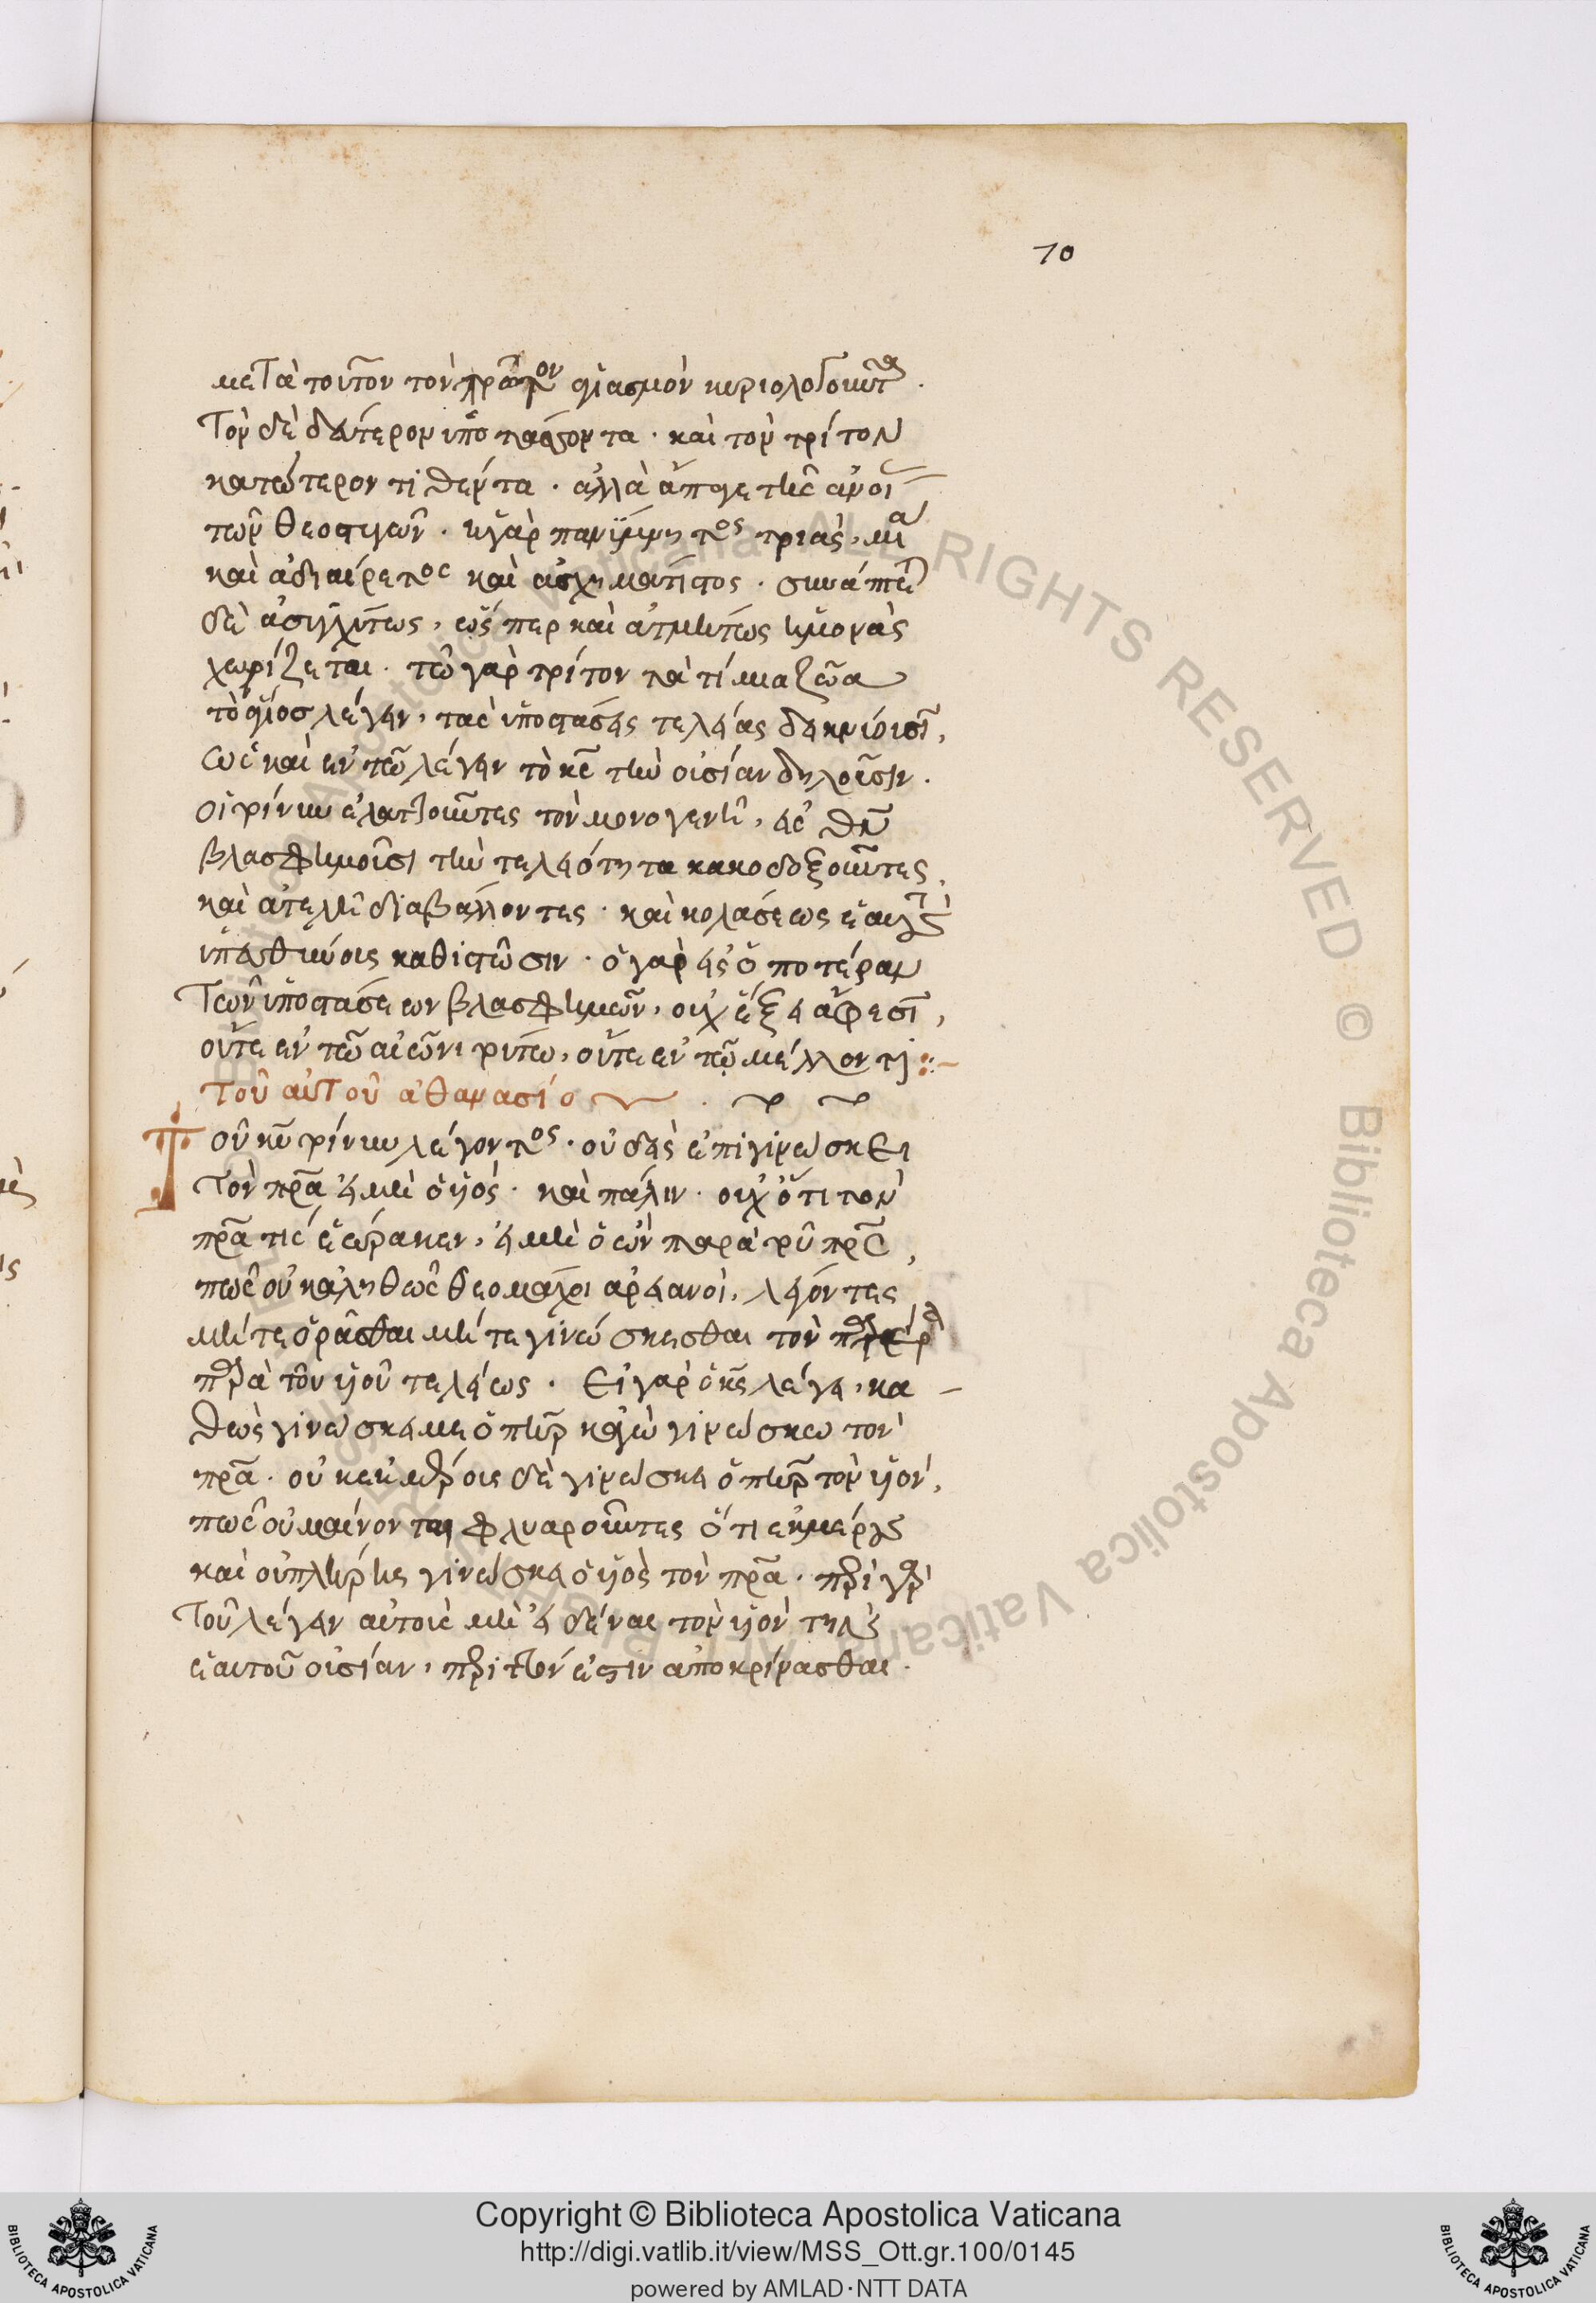 70
μετὰ τοῦτον τὸν πρῶτον ἁγιασμὸν κυριολογοῦντα.
Τὸν δὲ δεύτερον ὑποτάσσοντα. καὶ τὸν τρίτον
κατώτερον τιθέντα. ἀλλὰ ἄπαγε τῆς ἀνοί
τῶν θεοστυγῶν. ἡ γὰρ πανύμνητος τριὰς, μία
καὶ ἀδιαίρετος καὶ ἀσχημάτιστος. συνάπτεται
δὲ ἀσυγχύτως, ὥσπερ καὶ ἀτμήτως ἡ μονὰς
χωρίζεται. τῷ γὰρ τρίτον τὰ τίμια ζῶα
τὸ ἅγιος λέγειν, τὰς ὑποστάσεις τελείας δεικνύουσι,
ὡς καὶ ἐν τῷ λέγειν τὸ κς τὴν οὐσίαν δηλοῦσιν.
οἱ τοίνυν ἐλαττοῦντες τὸν μονογενῆ, εἰς θν
βλασφημοῦσι τὴν τελειότητα κακοδοξοῦντες,
καὶ ἀτελῆ διαβάλλοντες. καὶ κολάσεως ἑαυτοὺς
ὑπευθύνους καθιστῶσιν. ὁ γὰρ εἰς ὁποτέραν
Τῶν ὑποστάσεων βλασφημῶν, οὐχ ἕξει ἄφεσι,
οὔτε ἐν τῷ αἰῶνι τούτω, οὔτε ἐν τῷ μέλλοντι:~
Τοῦ αὐτοῦ ἀθανασίου
Τοῦ κυ τοίνυν λέγοντος. οὐδεὶς ἐπιγινώσκει
Τὸν πρα εἰ μὴ ὁ υἱός. καὶ πάλιν. οὐχ ὅτι τὸν
πρα τίς ἑώρακεν, εἰ μὴ ὁ ὢν παρὰ τοῦ πρς,
πῶς οὐκ ἀληθῶς θεομάχοι ἀρειανοὶ, λέγοντες
μήτε ὁρᾶσθαι μήτε γινώσκεσθαι τὸν πρα
παρὰ τοῦ υἱοῦ τελείως. Εἰ γὰρ ὁ κς λέγει, κα
θὼς γινώσκει με ὁ πηρ κἀγὼ γινώσκω τὸν
πρα. οὐκ ἐκ μέρους δὲ γινώσκει ὁ πηρ τὸν υἱόν,
πῶς οὐ μαίνονται φλυαροῦντες ὅτι ἐκ μέρους
καὶ οὐ πλήρης γινώσκει ὁ υἱὸς τὸν πρα. περὶ γὰρ
Τοῦ λέγειν αὐτοὺς μὴ εἰδέναι τὸν υἱὸν τὴν
ἑαυτοῦ οὐσίαν, περιττόν ἐστιν ἀποκρίνασθαι.
Copyright © Biblioteca Apostolica Vaticana
http://digi.vatlib.it/view/MSS_Ott.gr.100/0145
powered by AMLAD·NTT DATA
BIBLIOTECA APOSTOLICA VATICANA
BIBLIOTECA APOSTOLICA VATICANA